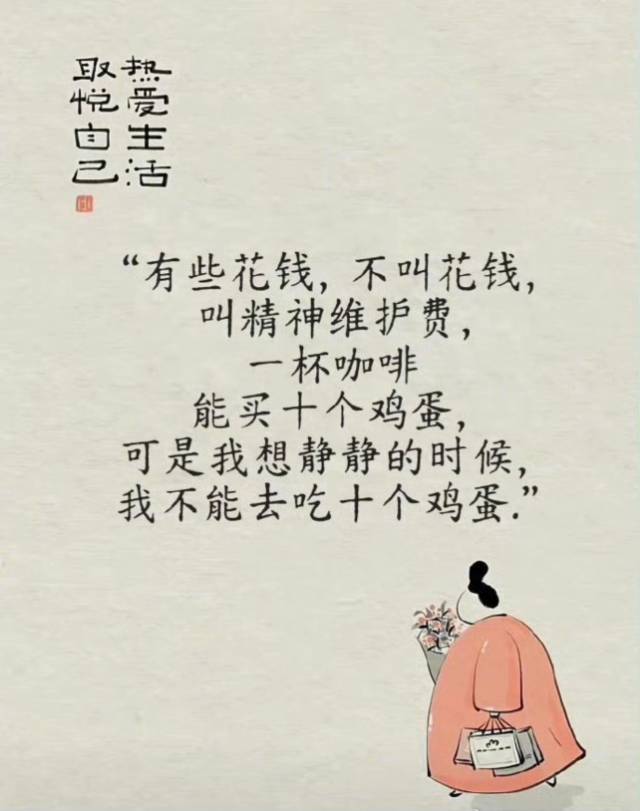 热爱生活
取悦自己
“有些花钱,不叫花钱,
叫精神维护费,
一杯咖啡
能买十个鸡蛋,
可是我想静静的时候,
我不能去吃十个鸡蛋.”